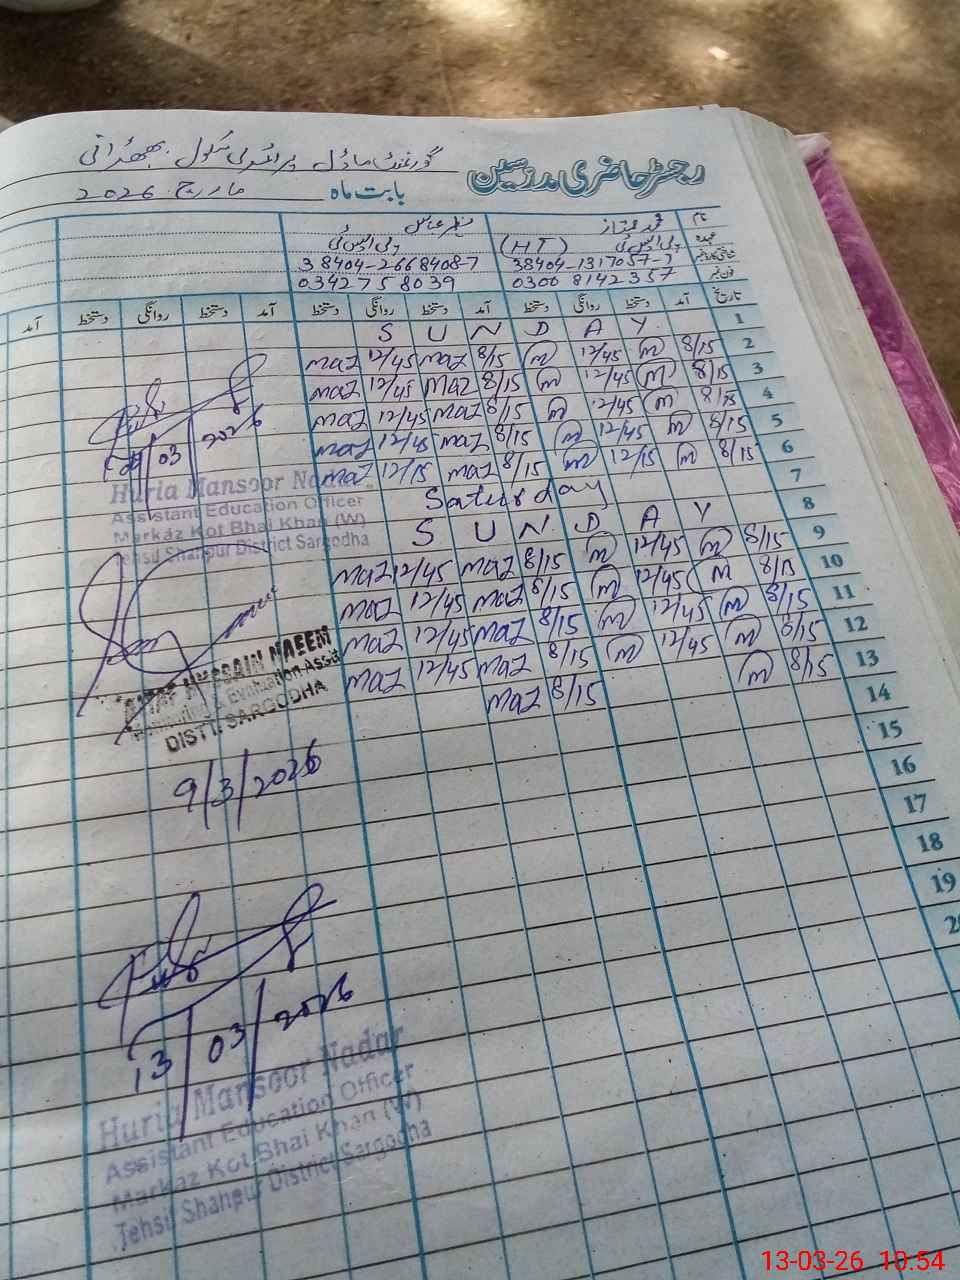 گورنمنٹ ماڈل پرائمری سکول
رجسٹر حاضری مدرسین
بابت ماہ مارچ 2026
نام محمد ممتاز
عہدہ پی ایس ٹی (HT) پی ایس ٹی
شناختی کارڈ نمبر 38404-1317057-7 38404-2668408-7
فون نمبر 0300 8142357 0342 758039
تاریخ آمد دستخط روانگی دستخط آمد دستخط روانگی دستخط آمد دستخط روانگی دستخط آمد
1 S U N D A Y
2 8/15 m 12/45 m 8/15 maz 12/45 maz
3 8/15 m 12/45 m 8/15 maz 12/45 maz
4 8/15 m 12/45 m 8/15 maz 12/45 maz
5 8/15 m 12/45 m 8/15 maz 12/45 maz
6 8/15 m 12/15 m 8/15 maz 12/15 maz
7 Saturday
8 S U N D A Y
9 8/15 m 12/45 m 8/15 maz 12/45 maz
10 8/15 m 12/45 m 8/15 maz 12/45 maz
11 8/15 m 12/45 m 8/15 maz 12/45 maz
12 8/15 m 12/45 m 8/15 maz 12/45 maz
13 8/15 m 8/15 maz
14
15
16
17
18
19
03/2026
Huria Mansoor
Assistant Education Officer
Markaz Kot Bhai Khan (W)
Tehsil Shahpur District Sargodha
HUSSAIN NAEEM
Monitoring & Evaluation Assis
DISTT. SARGODHA
9/3/2026
13/03/2026
Huria Mansoor Nadar
Assistant Education Officer
Markaz Kot Bhai Khan (W)
Tehsil Shahpur District Sargodha
13-03-26 10:54